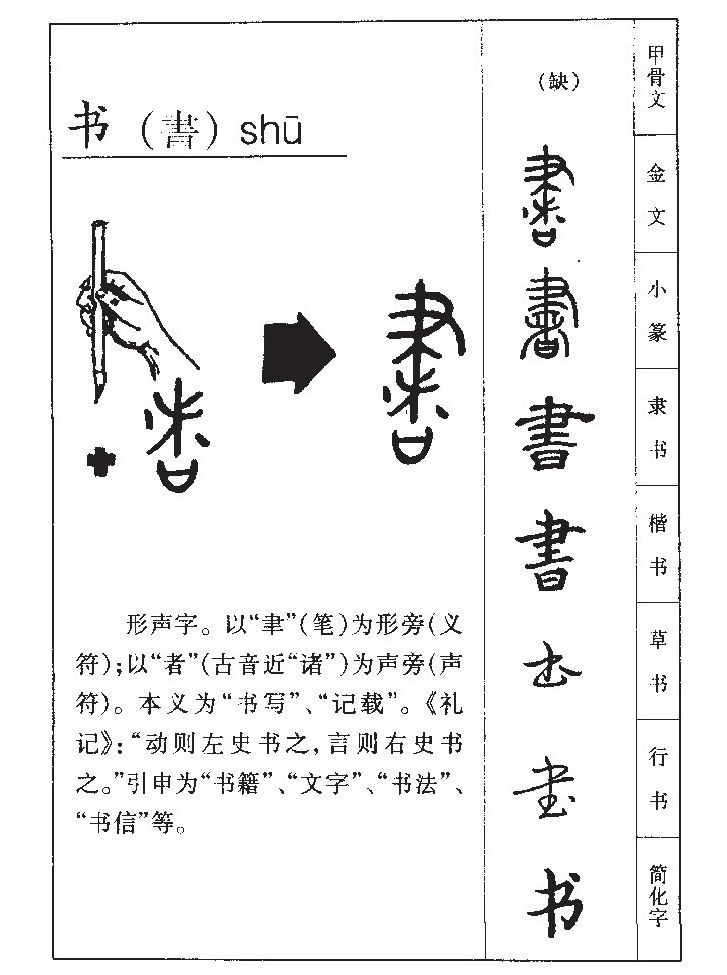 书（書）shū
形声字。以“聿”(笔)为形旁(义
符);以“者”(古音近“诸”)为声旁(声
符)。本义为“书写”、“记载”。《礼
记》：“动则左史书之,言则右史书
之。”引申为“书籍”、“文字”、“书法”、
“书信”等。
（缺）
甲骨文
書
金文
書
小篆
書
隶书
書
楷书
书
草书
书
行书
书
简化字